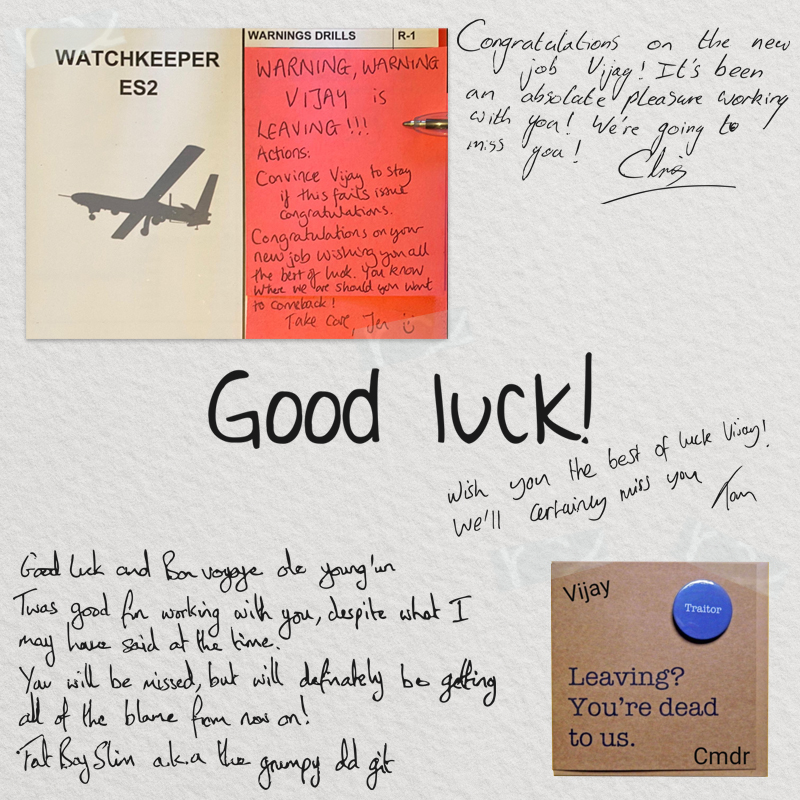 WATCHKEEPER
ES2
WARNINGS DRILLS R-1
WARNING, WARNING
VIJAY is
LEAVING!!!
Actions:
Convince Vijay to stay
if this fails issue
congratulations.
Congratulations on your
new job wishing you all
the best of luck. You know
where we are should you want
to comeback!
Take Care, Jen
Congratulations on the new
job Vijay! It's been
an absolute pleasure working
with you! We're going to
miss you!
Chris
Good luck!
Wish you the best of luck Vijay!
We'll certainly miss you
Tom
Good luck and Bon voyage ole young'un
Twas good fun working with you, despite what I
may have said at the time.
You will be missed, but will definately be getting
all of the blame from now on!
Fat Boy Slim a.k.a the grumpy old git
Vijay
Traitor
Leaving?
You're dead
to us.
Cmdr